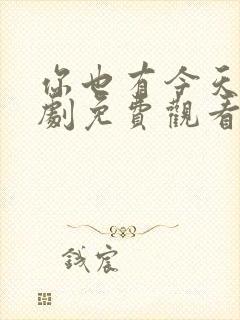 你也有今天
劇免費觀看
鋮宸